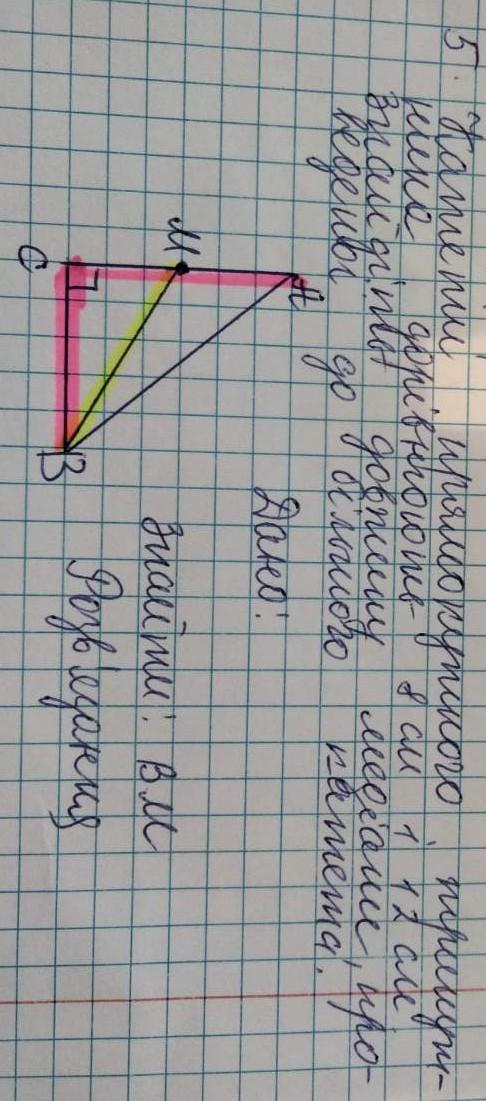 5. Катети прямокутного трикут-
ника дорівнюють 8 см і 12 см
Знайдіть довжину медіани, про-
веденої до більшого катета.
A
M
C
B
Дано:
Знайти: BM
Розв'язання